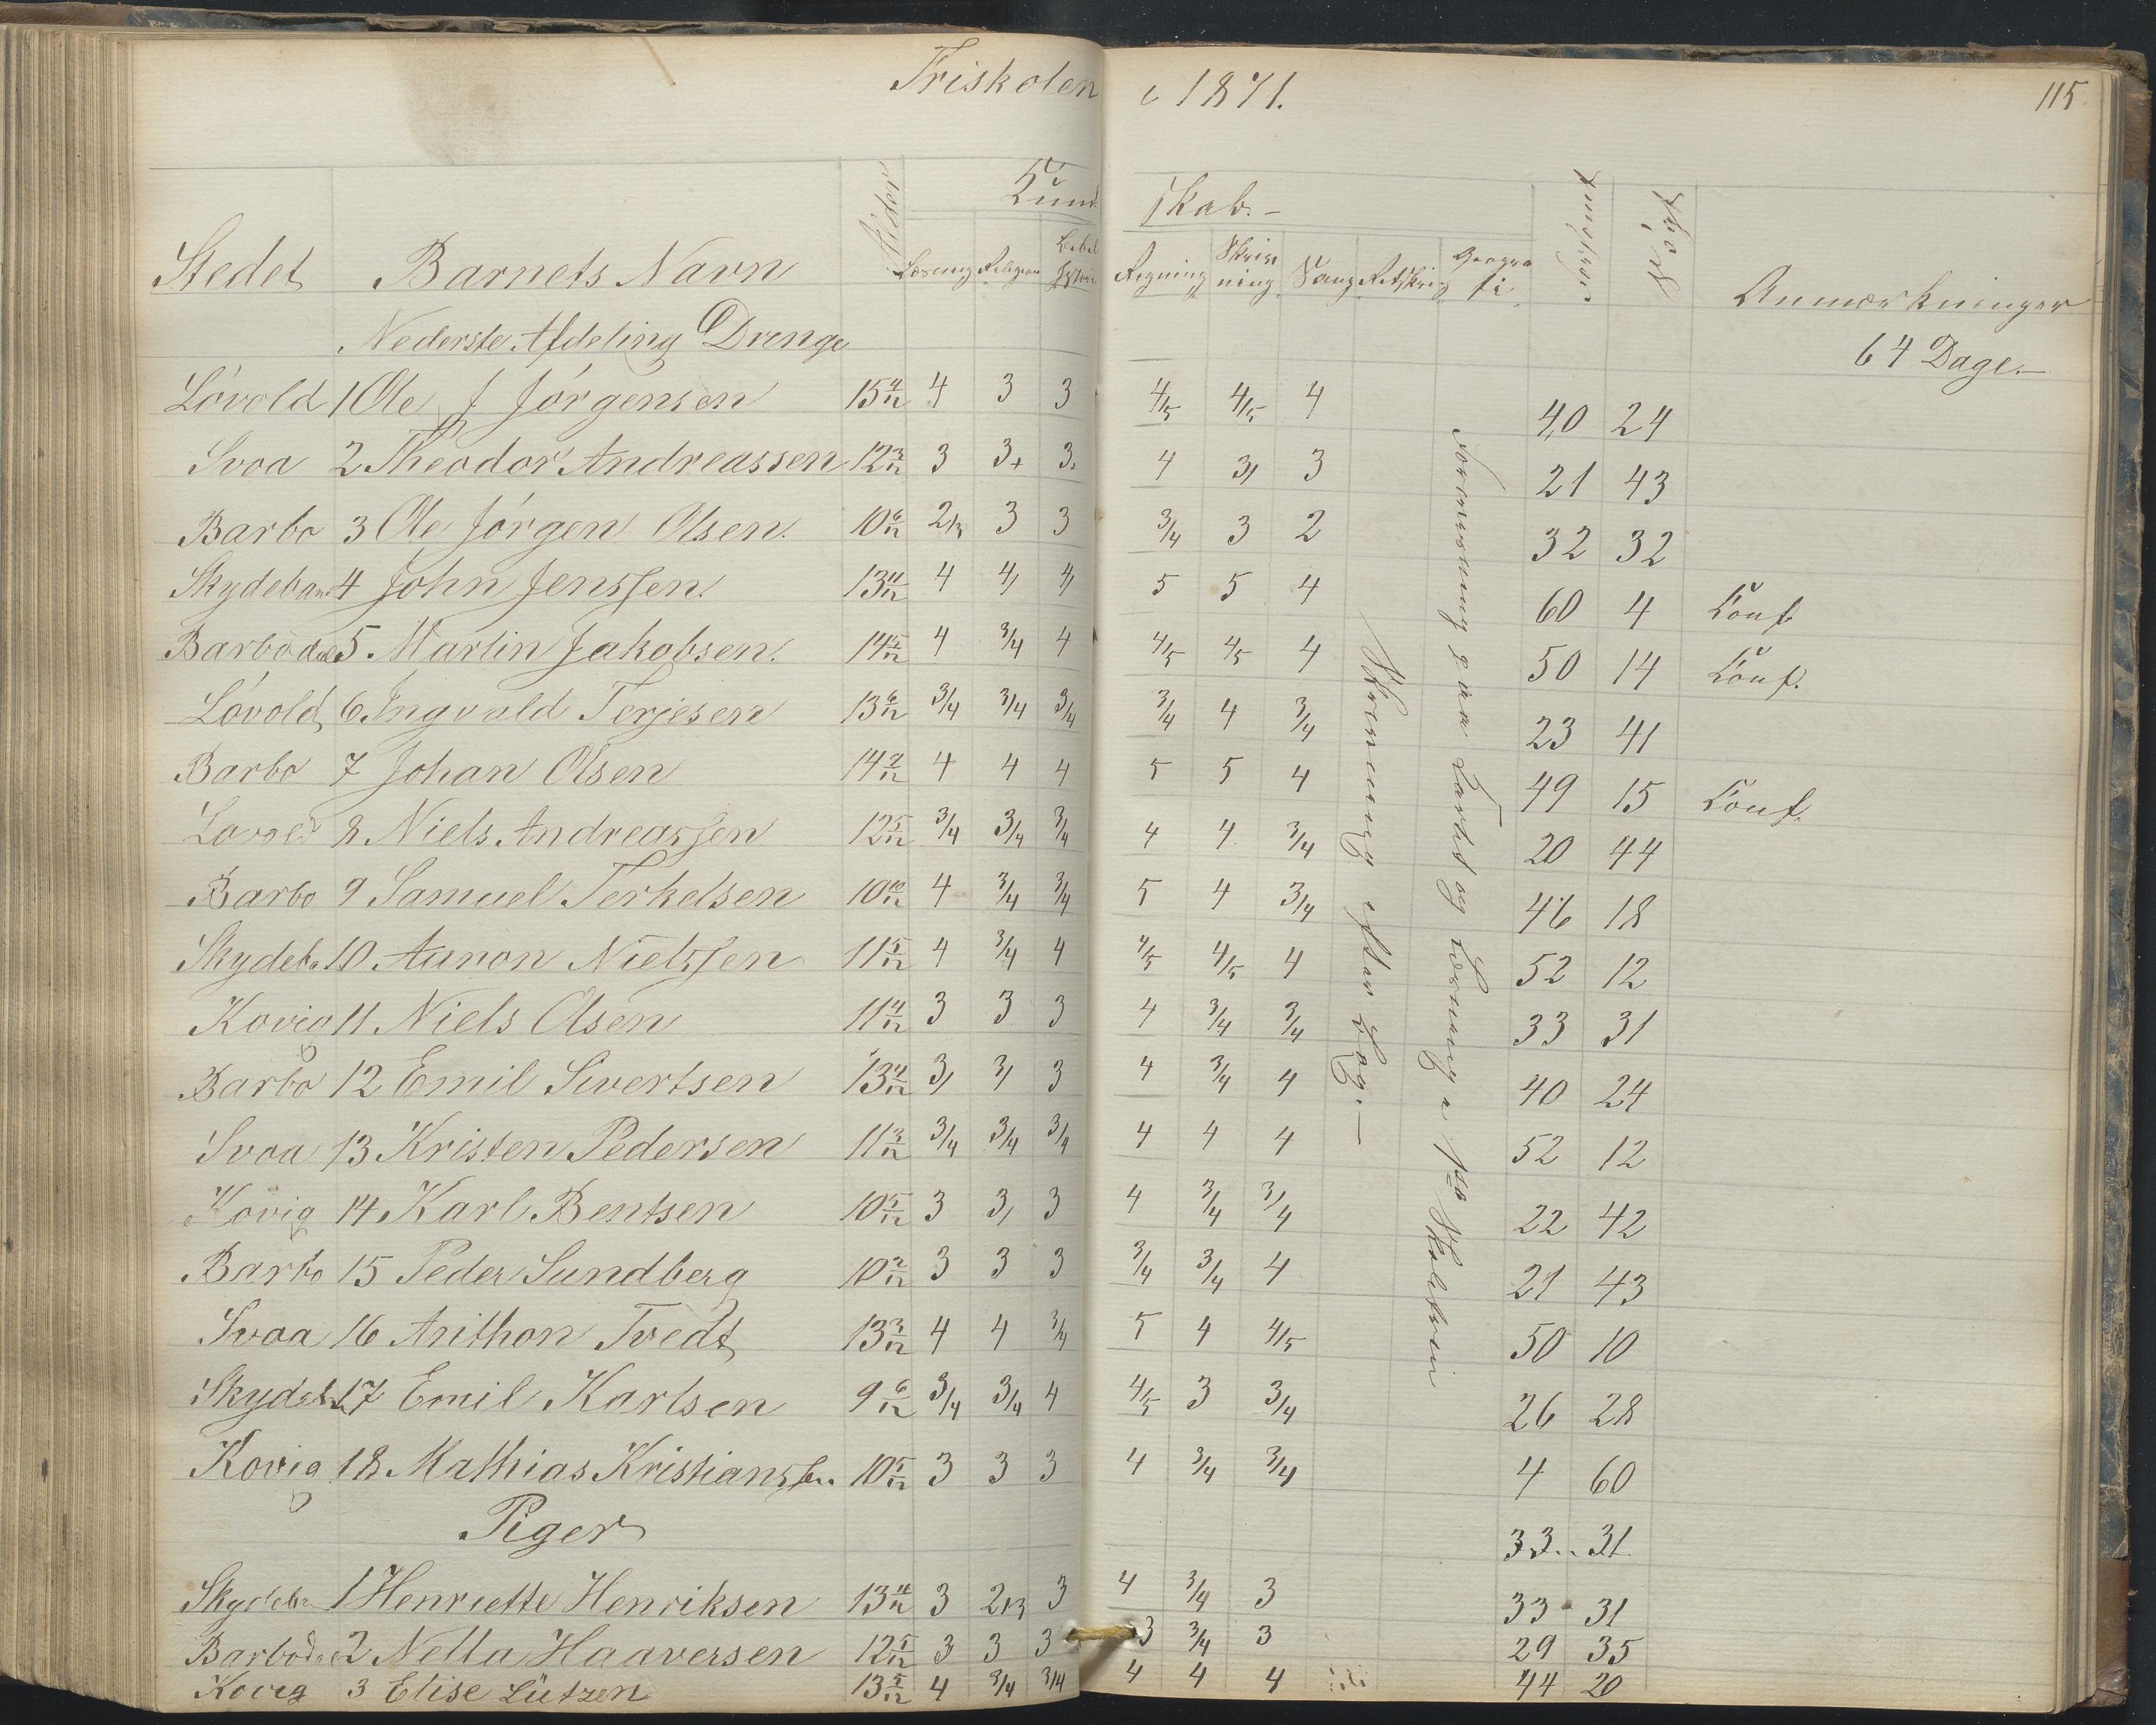 Friskolen i 1871. 115
Kundskab.
Stedet Barnets Navn Alder Læsning Religion Bibel Historie Regning Skrivning Sang Retskriv Geografi Forsømt Mødt Anmærkninger
Nederste Afdeling Drenge 64 Dage.
Lóvold 1 Ole J Jórgensen 15 4/12 4 3 3 4/5 4/5 4 40 24
Svoa 2 Theodor Andreassen 12 3/12 3 3+ 3. 4 3/ 3 21 43
Barbo 3 Ole Jórgen Olsen. 10 6/12 2/3 3 3 3/4 3 2 32 32
Skydeban 4 John Jenssen. 13 11/12 4 4/ 4/ 5 5 4 60 4 Konf.
Barbodal 5 Martin Jakobsen. 14 5/12 4 3/4 4 4/5 4/5 4 50 14 Konf.
Lóvold 6 Ingvald Terjesen 13 6/12 3/4 3/4 3/4 3/4 4 3/4 23 41
Barbo 7 Johan Olsen 14 2/12 4 4 4 5 5 4 49 15 Konf.
Lovold 8 Niels Andreassen 12 5/12 3/4 3/4 3/4 4 4 3/4 20 44
Barbo 9 Samuel Terkelsen 10 10/12 4 3/4 3/4 5 4 3/4 46 18
Skydeb. 10 Aanon Nielssen 11 5/12 4 3/4 4 4/5 4/5 4 52 12
Kovig 11 Niels Olsen 11 4/12 3 3 3 4 3/4 3/4 33 31
Barbo 12 Emil Sivertsen 13 4/12 3/ 3/ 3 4 3/4 4 40 24
Svoa 13 Kristen Pedersen 11 3/12 3/4 3/4 3/4 4 4 4 52 12
Kovig 14 Karl Bentsen 10 5/12 3 3/ 3 4 3/4 3/4 22 42
Barbo 15 Peder Sundberg 10 2/12 3 3 3 3/4 3/4 4 21 43
Svoa 16 Anthon Tvedt 13 3/12 4 4 3/4 5 4 4/5 50 10
Skydeb 17 Emil Karlsen 9 6/12 3/4 3/4 4 4/5 3 3/4 26 28
Kovig 18 Mathias Kristianssen 10 5/12 3 3 3 4 3/4 3/4 4 60
Piger 33 .. 31
Skydeb. 1 Henriette Henriksen 13 11/12 3 2/3 3 4 3/4 3 33 31
Barbodal 2 Nella Haaversen 12 5/12 3 3 3 3 3/4 3 29 35
Kovig 3 Elise Lützen 13 5/12 4 3/4 3/4 4 4 4 44 20
Skrivning efter Bog.
Forevisning paa Kartet og Læsning i Skoletrin